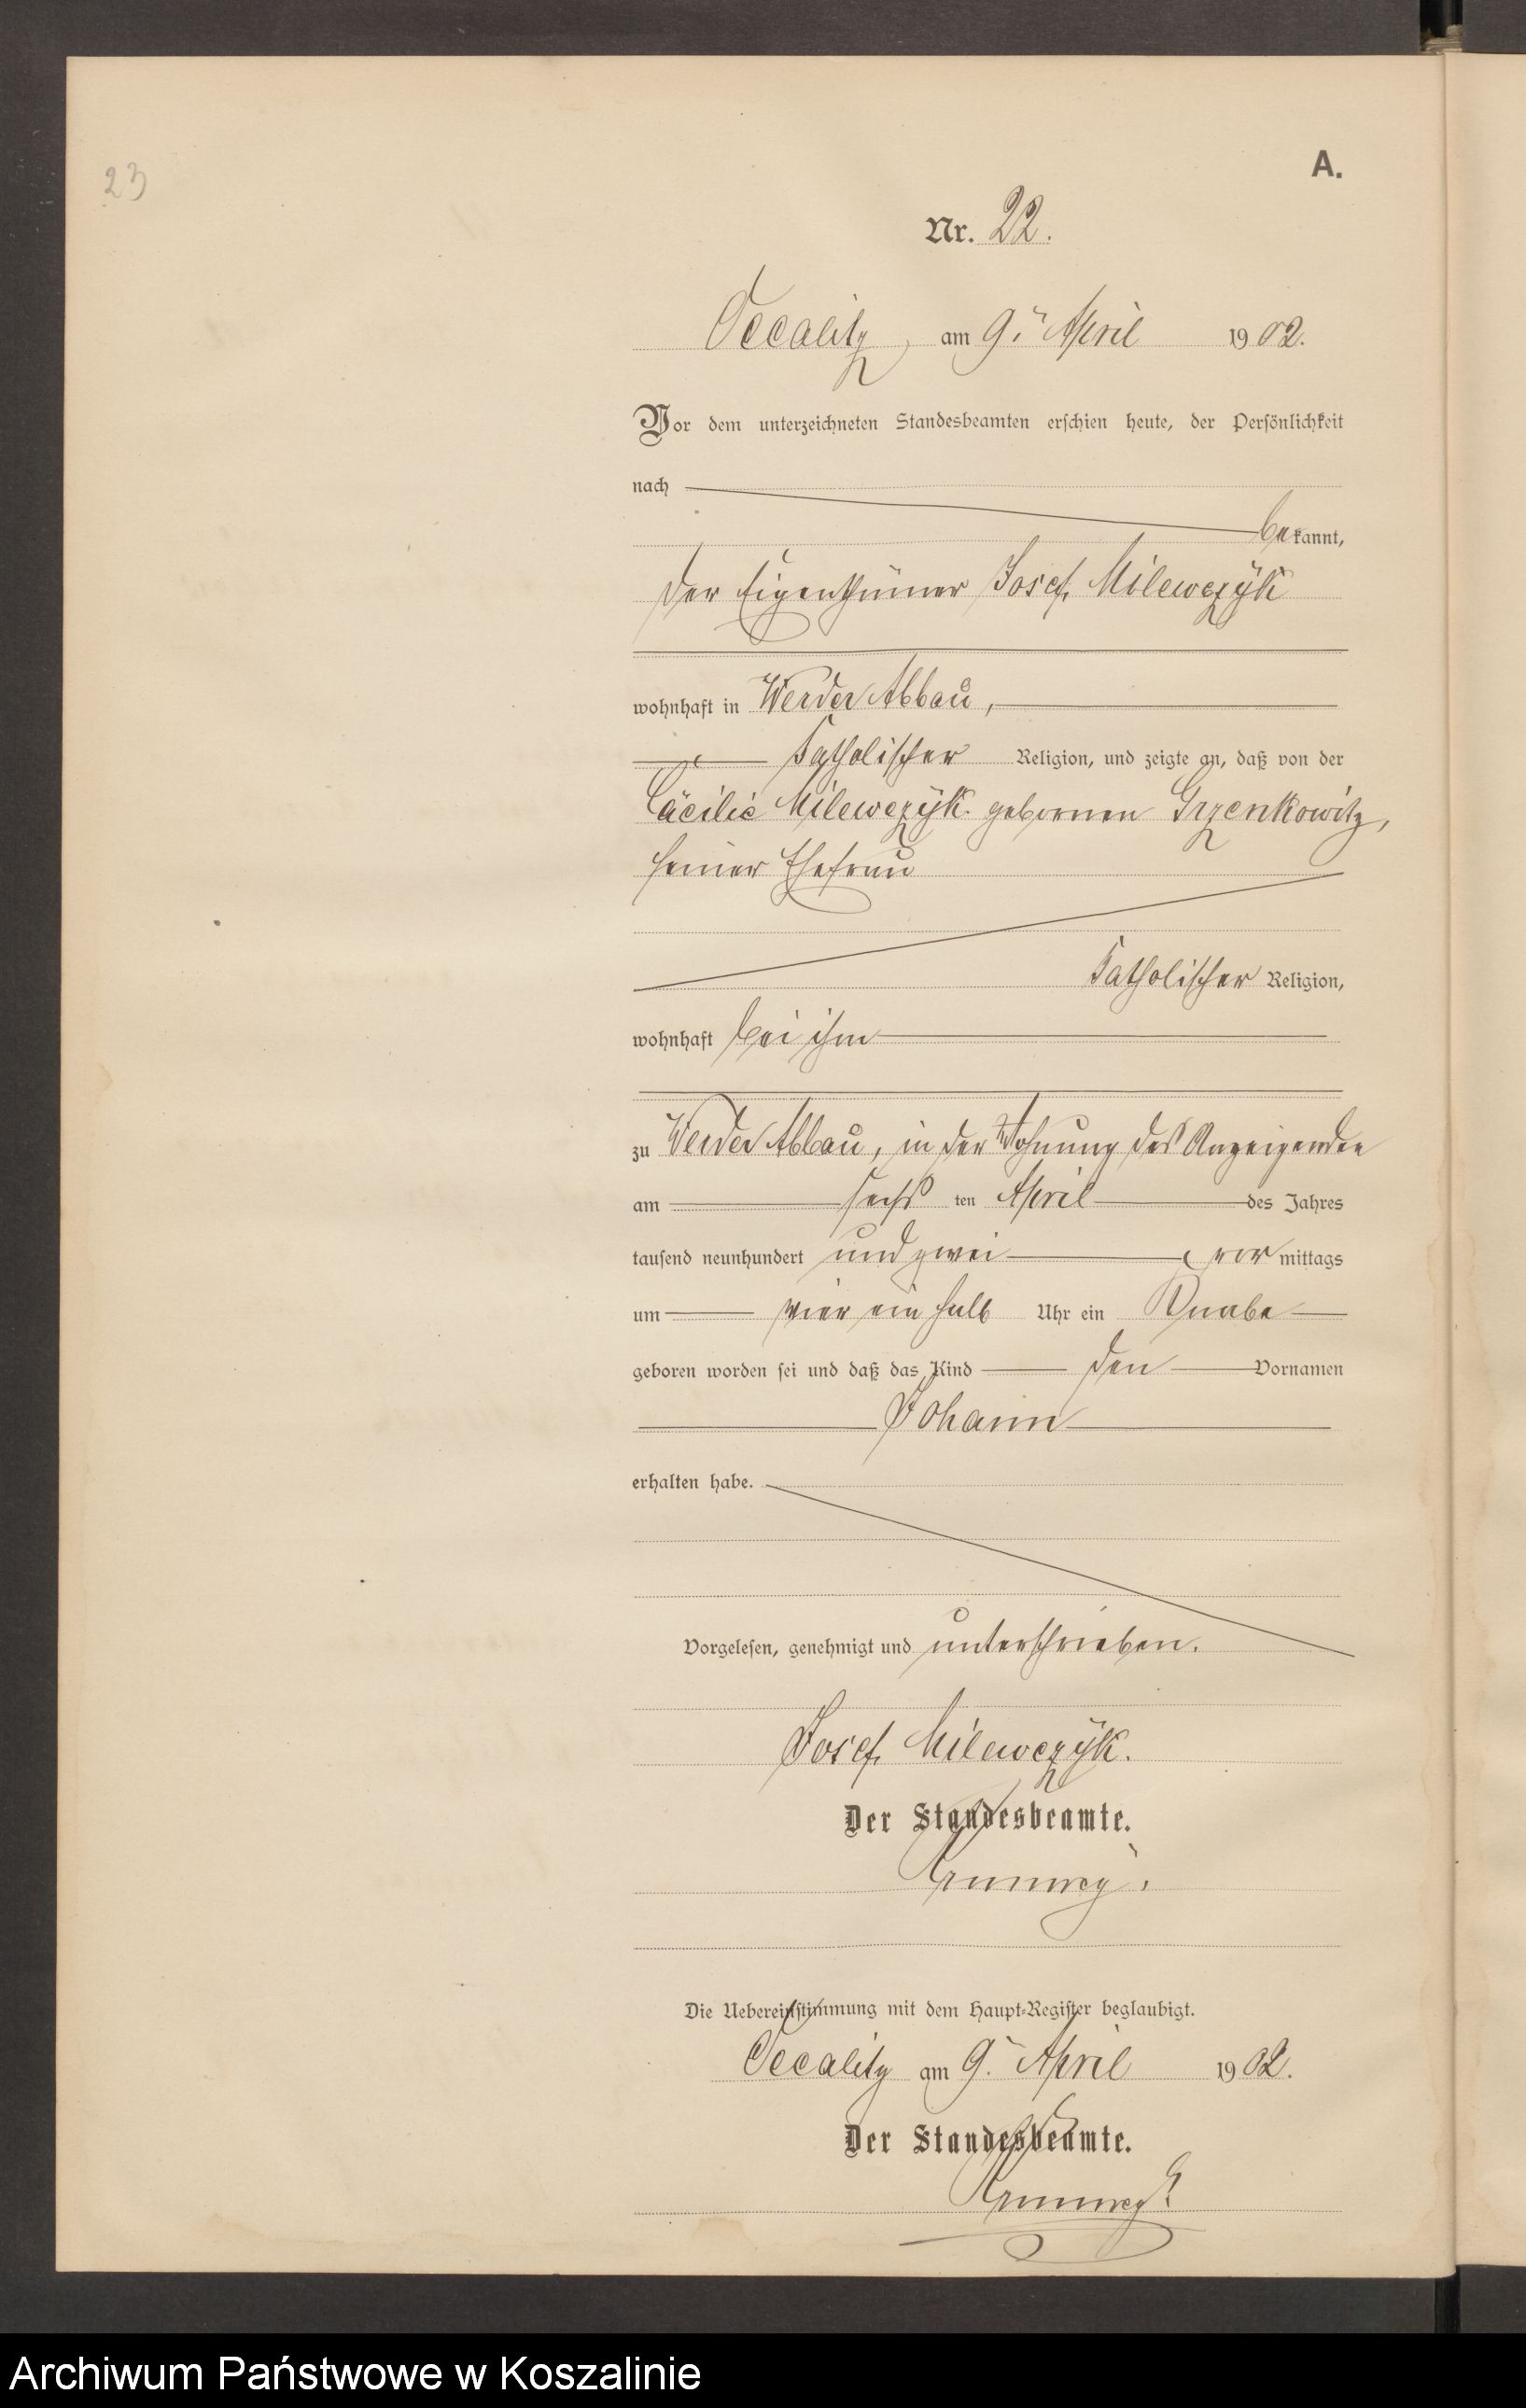 23
A.
Nr. 22.
Occalitz, am 9. April 1902.
Vor dem unterzeichneten Standesbeamten erschien heute, der Persönlichkeit
nach
bekannt,
der Eigenthümer Josef Milewczÿk
wohnhaft in Werder Abbau,
katholischer Religion, und zeigte an, daß von der
Cäcilie Milewczÿk gebornen Grzenkowitz,
seiner Ehefrau
katholischer Religion,
wohnhaft bei ihm
zu Werder Abbau, in der Wohnung des Anzeigenden
am sechsten April des Jahres
tausend neunhundert und zwei, vormittags
um vier ein halb Uhr ein Knabe
geboren worden sei und daß das Kind den Vornamen
Johann
erhalten habe.
Vorgelesen, genehmigt und unterschrieben.
Josef Milewczÿk.
Der Standesbeamte.
Die Uebereinstimmung mit dem Haupt-Register beglaubigt.
Occalitz am 9. April 1902.
Der Standesbeamte.
Archiwum Państwowe w Koszalinie